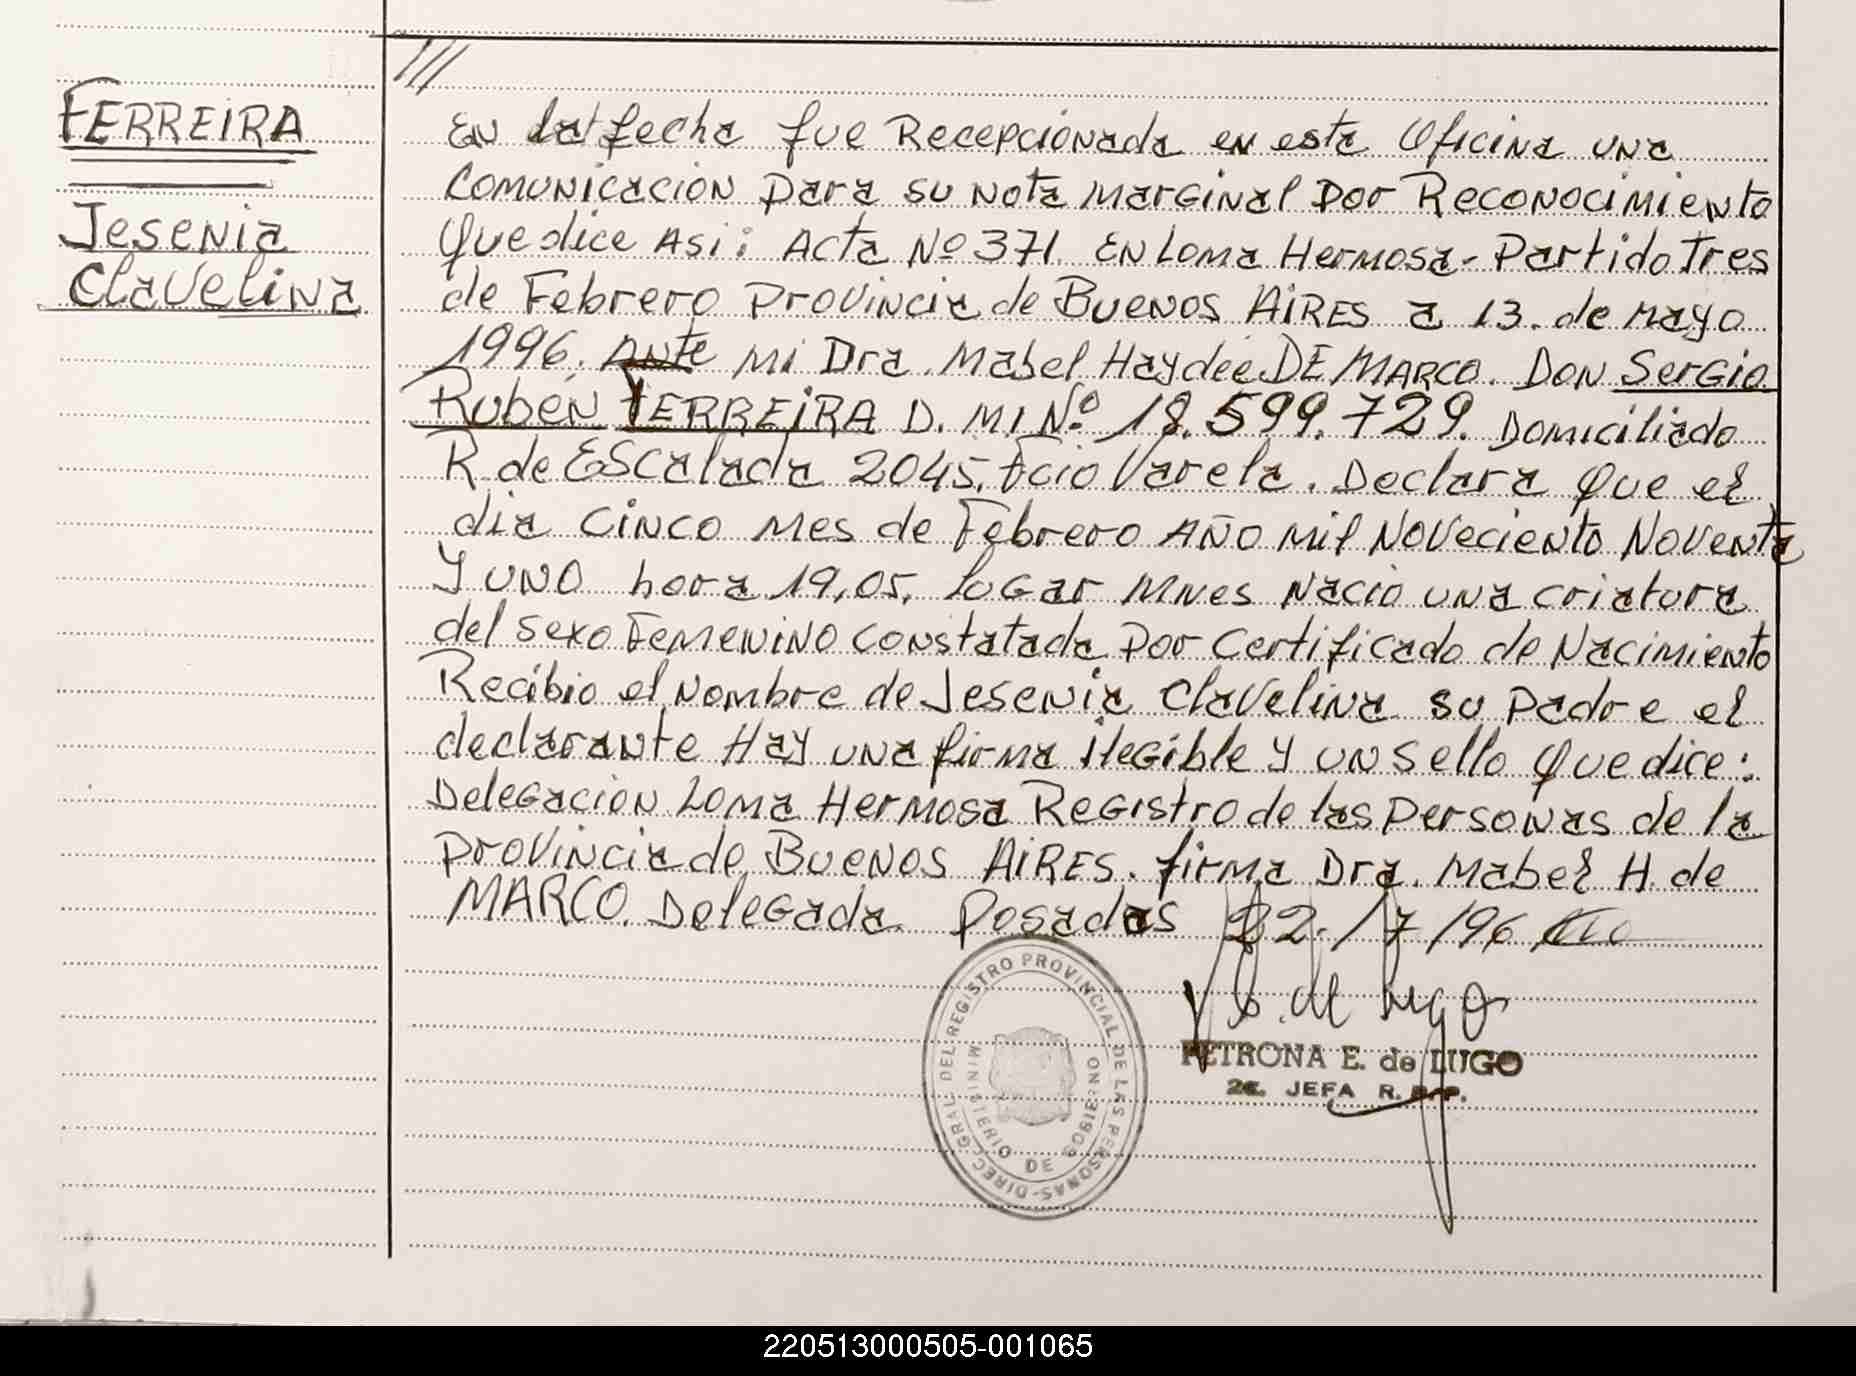 FERREIRA
Jesenia
Clavelina
///
En la fecha fue Recepcionada en esta Oficina una
Comunicacion para su nota marginal por Reconocimiento
Que dice Asi: Acta Nº 371. En Loma Hermosa - Partido Tres
de Febrero Provincia de Buenos AiRES a 13. de mayo
1996. Ante mi Dra. Mabel Haydée DE MARCO. Don Sergio
Ruben FERREiRA D. M I Nº 18.599.729. Domiciliado
R. de Escalada 2045. Fcio Varela. Declara que el
dia cinco mes de Febrero Año mil Noveciento Noventa
y uno hora 19,05. lugar Mnes Nacio una criatura
del sexo Femenino constatada por Certificado de Nacimiento
Recibio el Nombre de Jesenia Clavelina su padre el
declarante Hay una firma ilegible y un sello que dice:
Delegacion Loma Hermosa Registro de las personas de la
provincia de Buenos AiRES. firma Dra. Mabel H. de
MARCO. Delegada. Posadas 22./7/96
P. E. de Lugo
PETRONA E. de LUGO
2a. JEFA R. P. P.
DIREC. GRAL. DEL REGISTRO PROVINCIAL DE LAS PERSONAS
MINISTERIO DE GOBIERNO
220513000505-001065